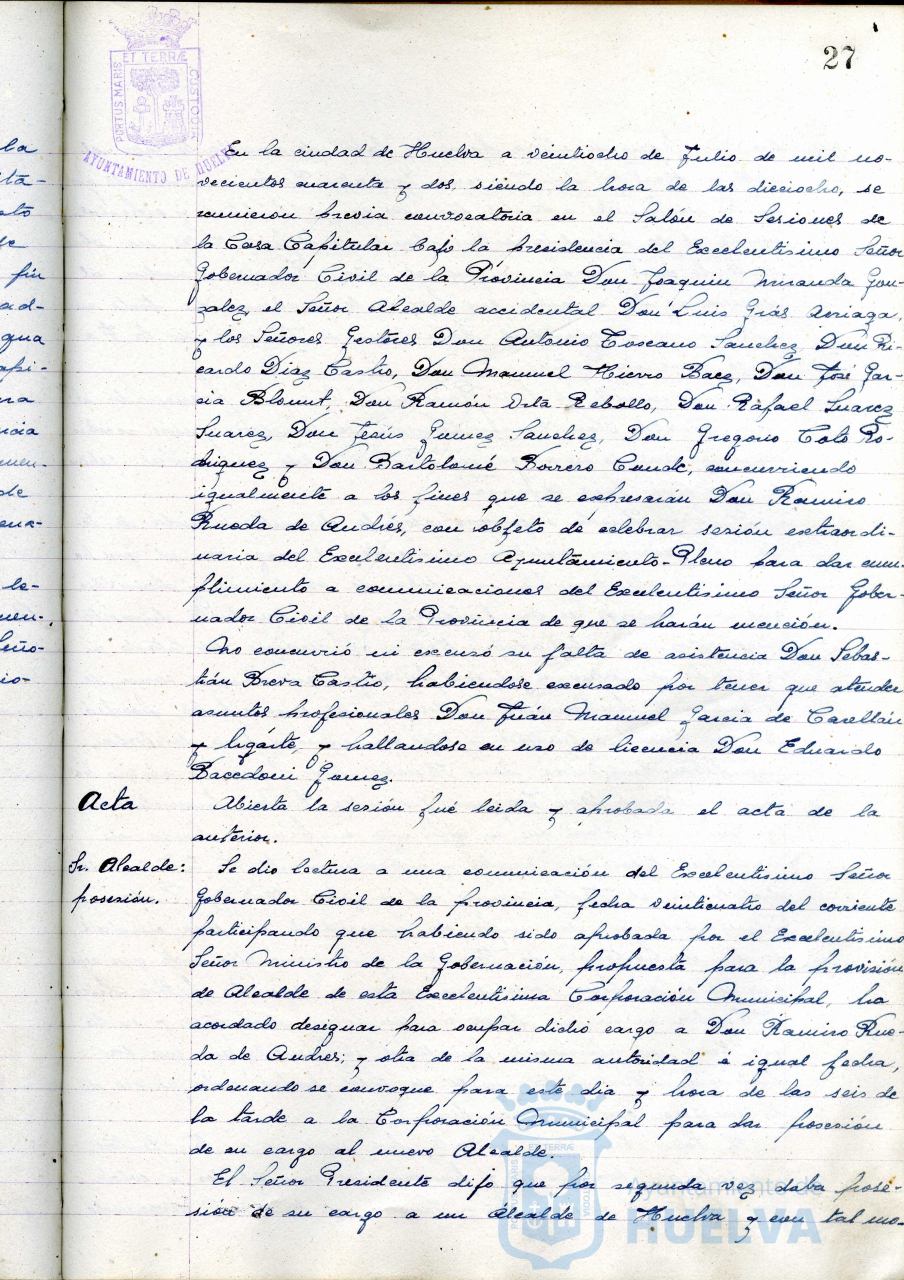 27
PORTUS MARIS ET TERRÆ CUSTODIA
AYUNTAMIENTO DE HUELVA
En la ciudad de Huelva a veintiocho de Julio de mil no-
vecientos cuarenta y dos, siendo la hora de las dieciocho, se
reunieron previa convocatoria en el Salón de Sesiones de
la Casa Capitular bajo la presidencia del Excelentisimo Señor
Gobernador Civil de la Provincia Don Joaquin Miranda Gon-
zalez, el Señor Alcalde accidental Don Luis Grás Arriaga,
y los Señores Gestores Don Antonio Toscano Sanchez, Don Ri-
cardo Diaz Castro, Don Manuel Hierro Baez, Don José Gar-
cia Blount, Don Ramón Orta Rebollo, Don Rafael Suarez
Suarez, Don Jesús Gomez Sanchez, Don Gregorio Toto Ro-
driguez y Don Bartolomé Borrero Conde, concurriendo
igualmente a los fines que se expresarán Don Ramiro
Rueda de Andrés, con objeto de celebrar sesión extraordi-
naria del Excelentisimo Ayuntamiento-Pleno para dar cum-
plimiento a comunicaciones del Excelentisimo Señor Gober-
nador Civil de la Provincia de que se harán mención.
No concurrió ni excusó su falta de asistencia Don Sebas-
tián Breva Castro, habiendose excusado por tener que atender
asuntos profesionales Don Juan Manuel Garcia de
y Ugarte, y hallandose en uso de licencia Don Eduardo
Gomez.
Acta
Abierta la sesión fué leida y aprobada el acta de la
anterior.
Sr. Alcalde:
posesión.
Se dio lectura a una comunicación del Excelentisimo Señor
Gobernador Civil de la provincia, fecha veinticuatro del corriente
participando que habiendo sido aprobada por el Excelentisimo
Señor Ministro de la Gobernación, propuesta para la provisión
de Alcalde de esta Excelentisima Corporación Municipal, ha
acordado designar para ocupar dicho cargo a Don Ramiro Rue-
da de Andres; y otra de la misma autoridad é igual fecha,
ordenando se convoque para este dia y hora de las seis de
la tarde a la Corporación Municipal para dar posesión
de su cargo al nuevo Alcalde.
El Señor Presidente dijo que por segunda vez daba pose-
sión de su cargo a un Alcalde de Huelva y con tal mo-
Ayuntamiento de
HUELVA